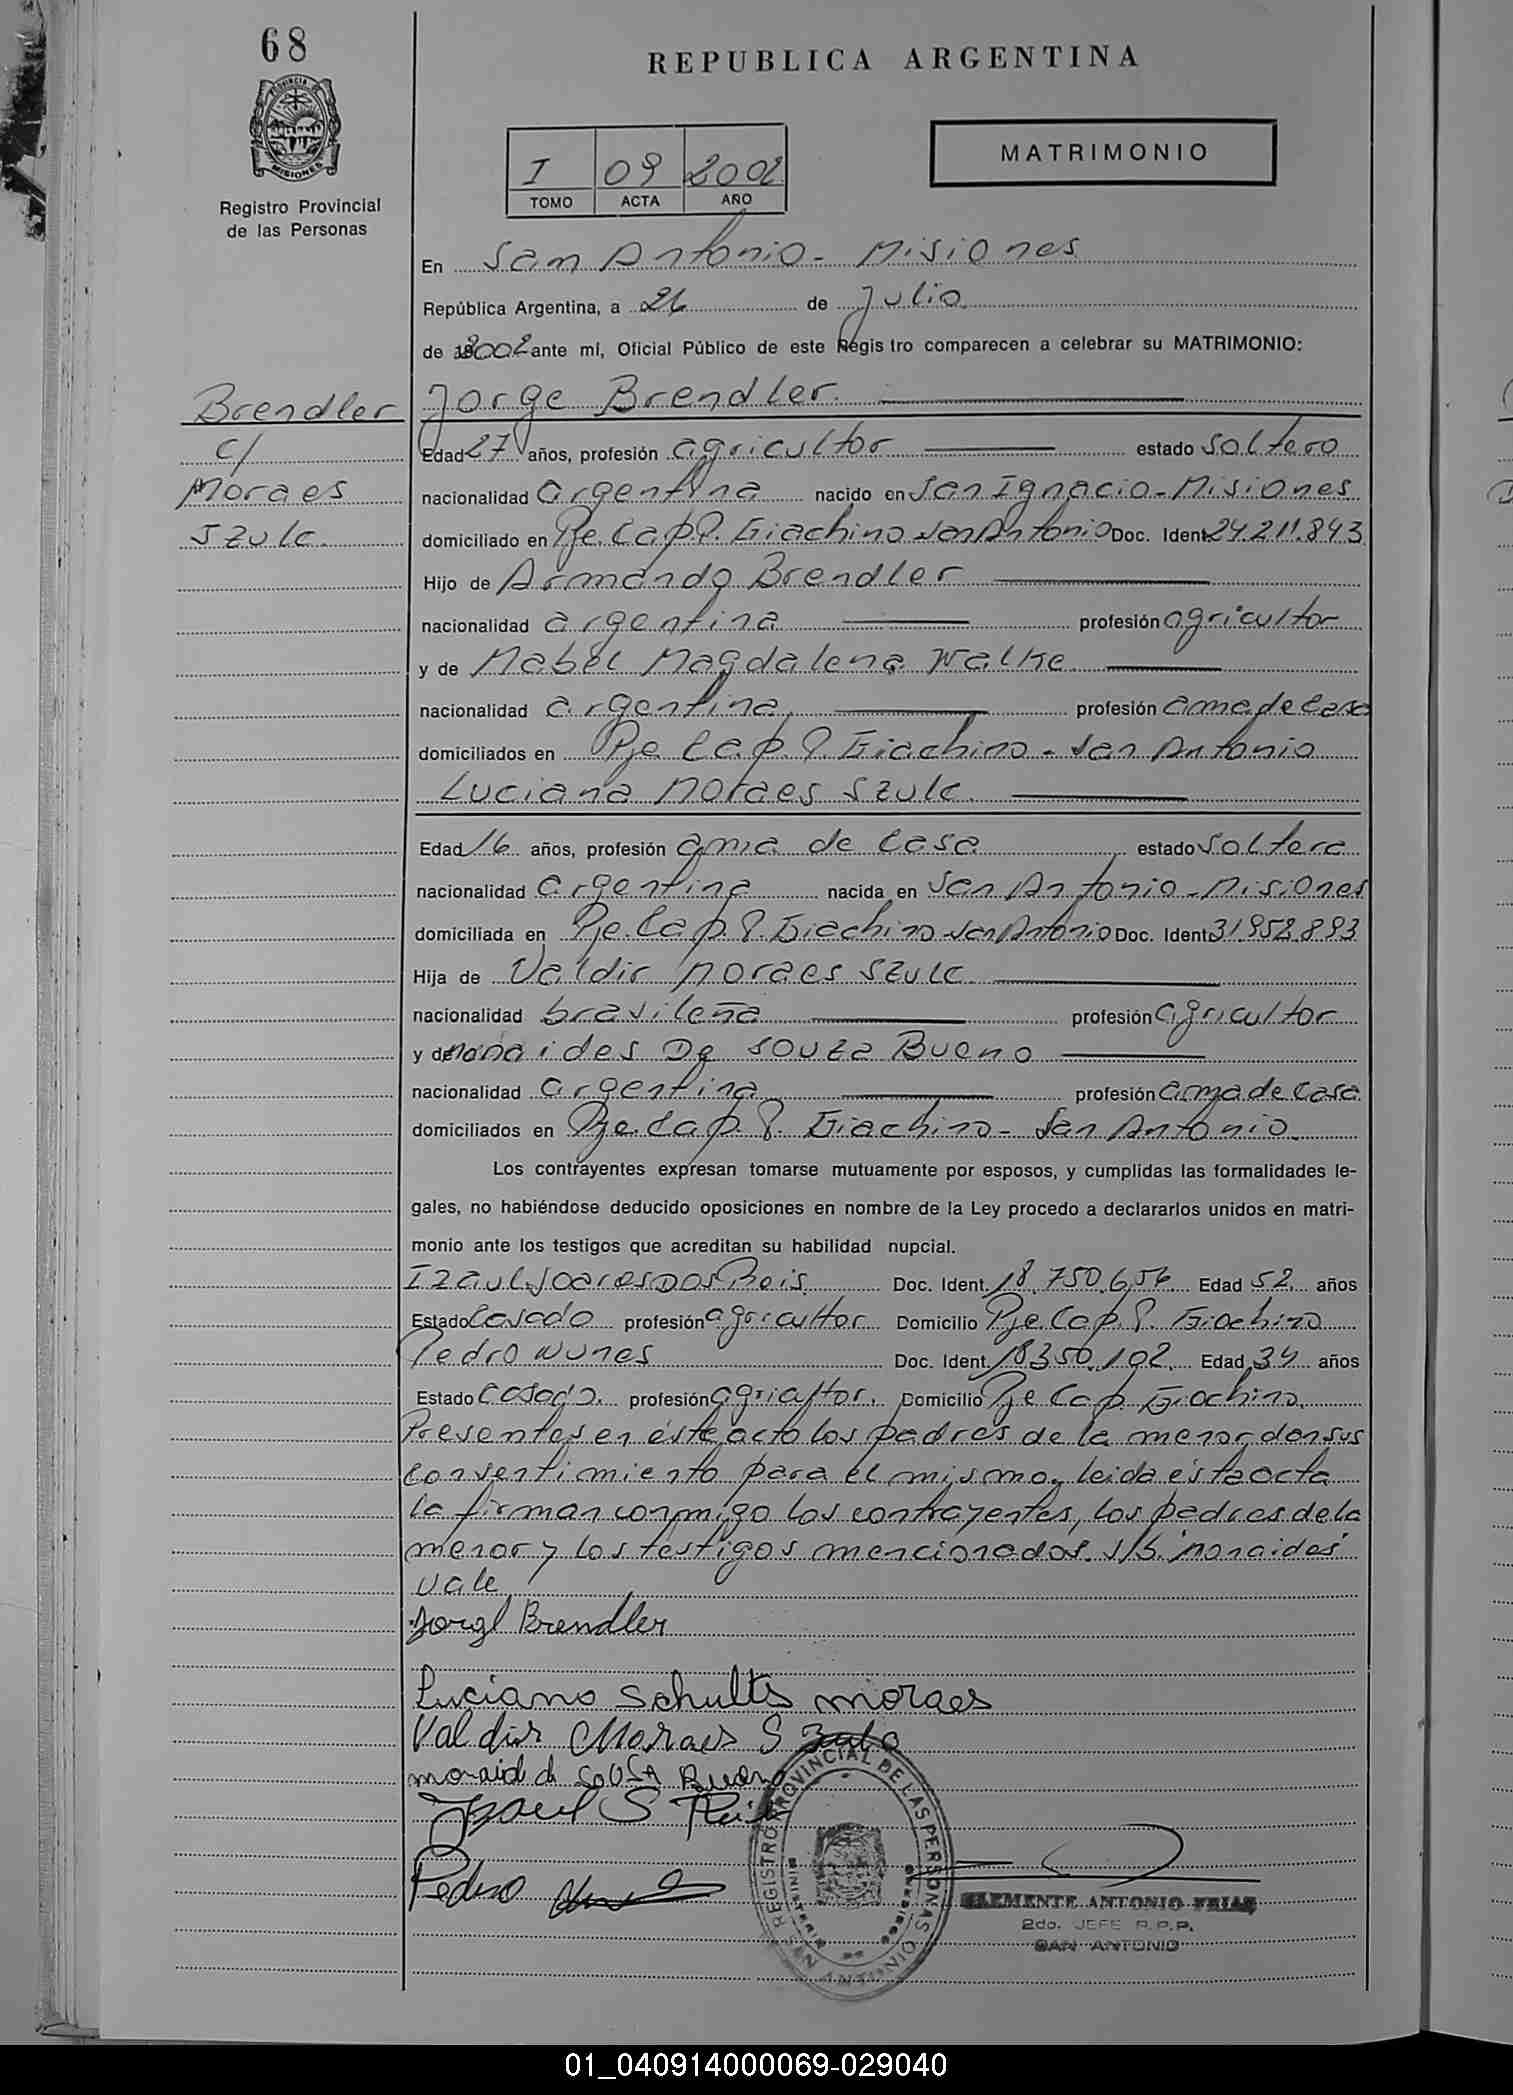 68
REPUBLICA ARGENTINA
PROVINCIA DE
MISIONES
Registro Provincial
de las Personas
I 09 2002
TOMO ACTA AÑO
MATRIMONIO
En San Antonio - Misiones
República Argentina, a 26 de Julio
de 2002 ante mí, Oficial Público de este Regis tro comparecen a celebrar su MATRIMONIO:
Brendler
c/
Moraes
Szulc.
Jorge Brendler.
Edad 27 años, profesión agricultor estado soltero
nacionalidad argentina nacido en San Ignacio - Misiones
domiciliado en Pje. Cap. P. Giachino San Antonio Doc. Ident. 24.211.843
Hijo de Armando Brendler
nacionalidad argentina profesión agricultor
y de Mabel Magdalena Walke
nacionalidad argentina profesión ama de casa
domiciliados en Pje. Cap. P. Giachino - San Antonio
Luciana Moraes Szulc.
Edad 16 años, profesión ama de casa estado soltera
nacionalidad argentina nacida en San Antonio - Misiones
domiciliada en Pje. Cap. P. Giachino San Antonio Doc. Ident. 31.952.893
Hija de Valdir Moraes Szulc.
nacionalidad brasileña profesión agricultor
y de Noraides De Souza Bueno
nacionalidad argentina profesión ama de casa
domiciliados en Pje. Cap. P. Giachino - San Antonio.
Los contrayentes expresan tomarse mutuamente por esposos, y cumplidas las formalidades le-
gales, no habiéndose deducido oposiciones en nombre de la Ley procedo a declararlos unidos en matri-
monio ante los testigos que acreditan su habilidad nupcial.
Izaul Soares Dos Reis. Doc. Ident. 18.750.656 Edad 52 años
Estado Casado profesión agricultor Domicilio Pje. Cap. P. Giachino
Pedro Nunes Doc. Ident. 18350.102. Edad 34 años
Estado casado. profesión agricultor. Domicilio Pje Cap. Giachino.
Presentes en éste acto los padres de la menor dan sus
consentimiento para el mismo, leida ésta acta
la firman conmigo los contrayentes, los padres de la
menor y los testigos mencionados. s/b. Noraides
vale
Jorge Brendler
Luciano Schults moraes
Valdir Moraes Szulc
moraid d SoUSA Bueno
Izaul S Reis
Pedro
REGISTRO PROVINCIAL DE LAS PERSONAS
MINISTERIO
SAN ANTONIO
CLEMENTE ANTONIO FRIAS
2do. JEFE R.P.P.
SAN ANTONIO
01_040914000069-029040